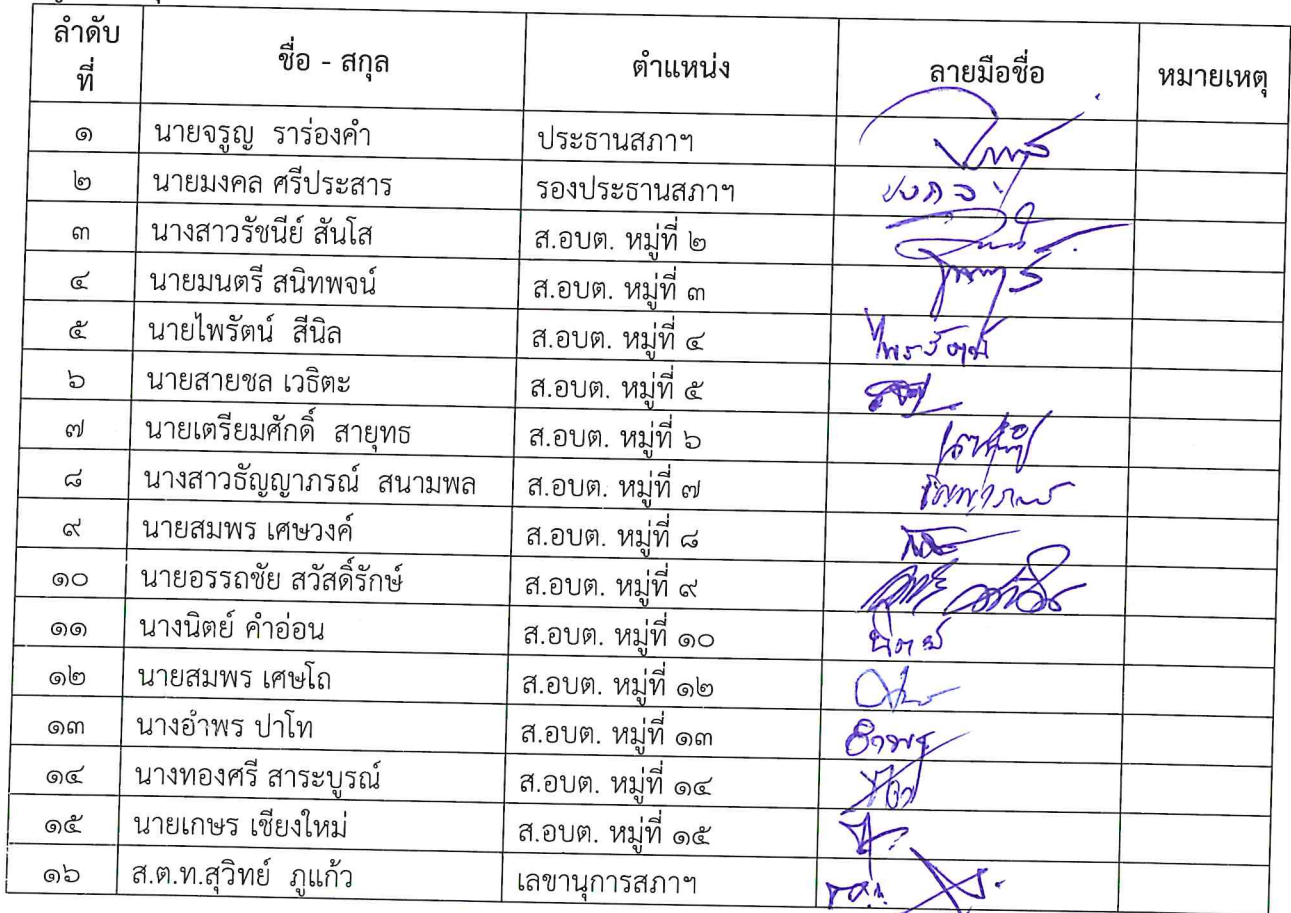 ลำดับที่ ชื่อ - สกุล ตำแหน่ง ลายมือชื่อ หมายเหตุ
๑ นายจรูญ ราร่องคำ ประธานสภาฯ
๒ นายมงคล ศรีประสาร รองประธานสภาฯ มงคล
๓ นางสาวรัชนีย์ สันโส ส.อบต. หมู่ที่ ๒
๔ นายมนตรี สนิทพจน์ ส.อบต. หมู่ที่ ๓
๕ นายไพรัตน์ สีนิล ส.อบต. หมู่ที่ ๔ ไพรัตน์
๖ นายสายชล เวธิตะ ส.อบต. หมู่ที่ ๕
๗ นายเตรียมศักดิ์ สายุทธ ส.อบต. หมู่ที่ ๖
๘ นางสาวธัญญาภรณ์ สนามพล ส.อบต. หมู่ที่ ๗ ธัญญาภรณ์
๙ นายสมพร เศษวงค์ ส.อบต. หมู่ที่ ๘
๑๐ นายอรรถชัย สวัสดิ์รักษ์ ส.อบต. หมู่ที่ ๙
๑๑ นางนิตย์ คำอ่อน ส.อบต. หมู่ที่ ๑๐ นิตย์
๑๒ นายสมพร เศษโถ ส.อบต. หมู่ที่ ๑๒
๑๓ นางอำพร ปาโท ส.อบต. หมู่ที่ ๑๓ อำพร
๑๔ นางทองศรี สาระบูรณ์ ส.อบต. หมู่ที่ ๑๔
๑๕ นายเกษร เชียงใหม่ ส.อบต. หมู่ที่ ๑๕
๑๖ ส.ต.ท.สุวิทย์ ภูแก้ว เลขานุการสภาฯ